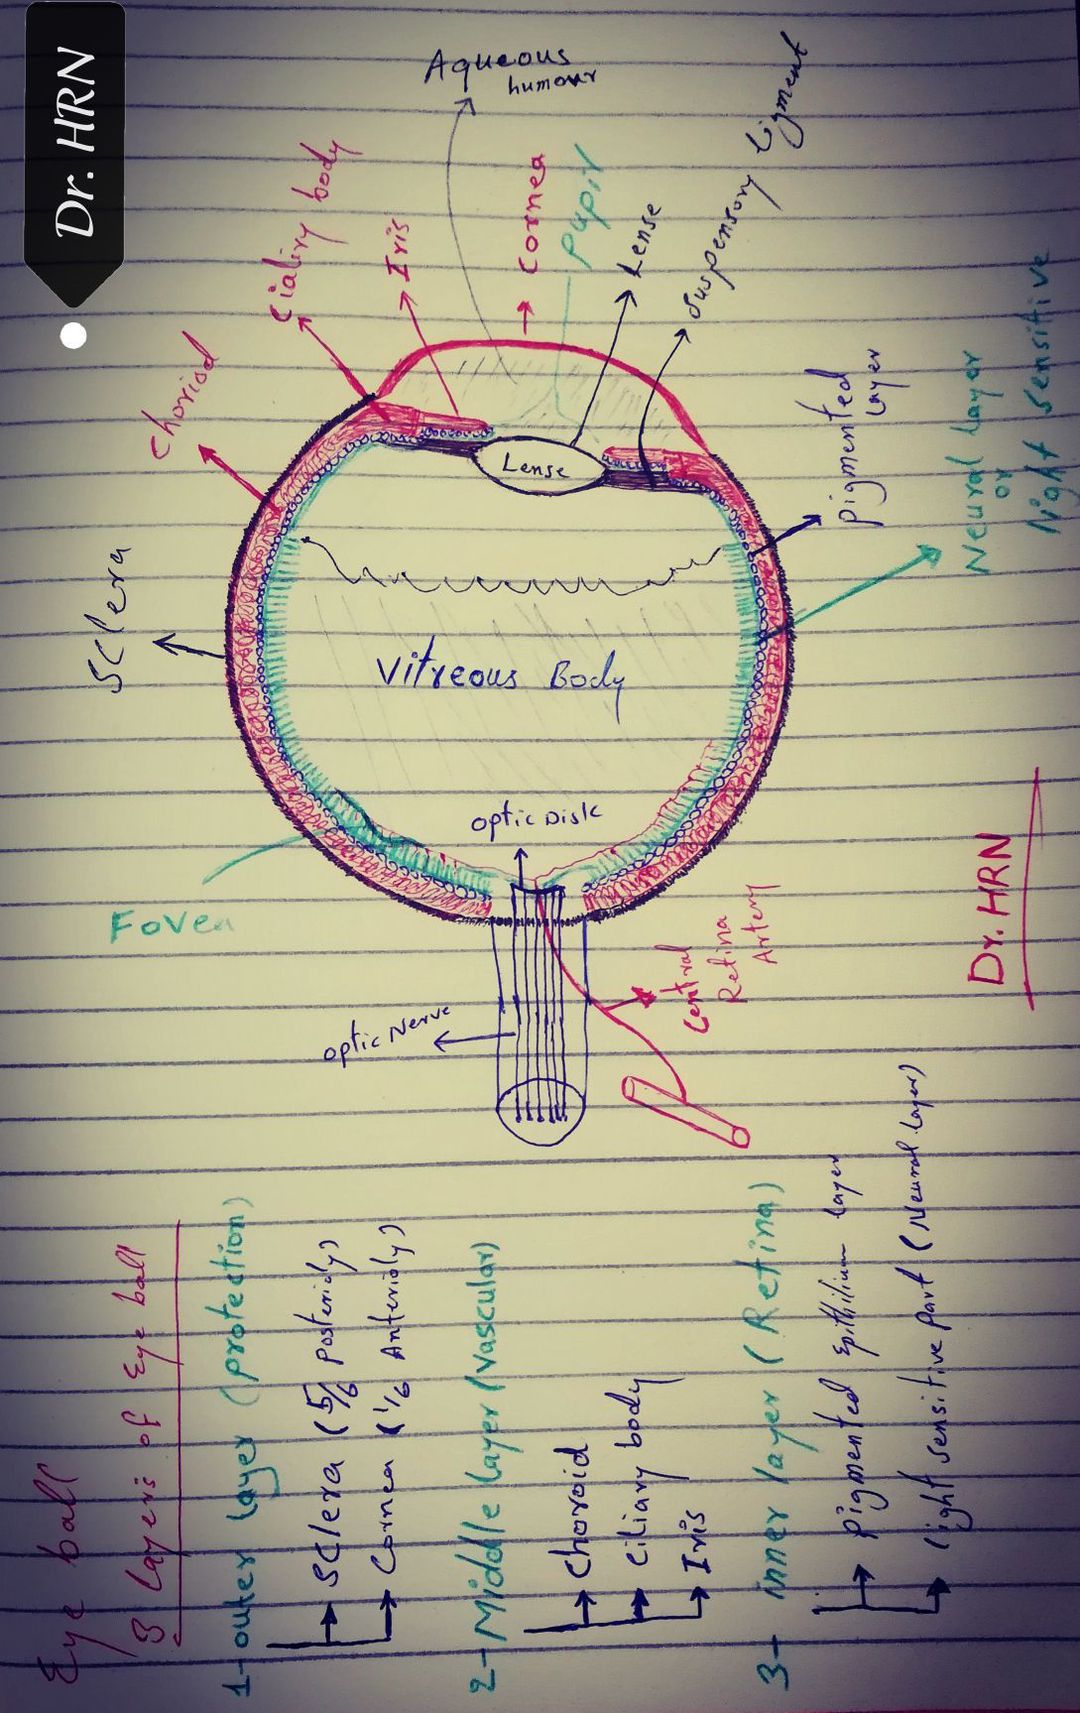 Dr. HRN
Eye ball
3 layers of Eye ball
1- outer layer (protection)
Sclera (5/6 posteriorly)
Cornea (1/6 Anteriorly)
2- Middle layer (vascular)
Choroid
Ciliary body
Iris
3- inner layer (Retina)
pigmented Epithilium layer
light sensitive part (Neural layer)
Aqueous
humour
Cialiry body
Iris
Cornea
Pupil
Lense
Suspensory Ligment
Choriod
Sclera
Lense
pigmented
layer
Neural layer
or
light sensitive
Vitreous Body
optic Disk
Fovea
optic Nerve
Central
Retina
Artery
Dr. HRN